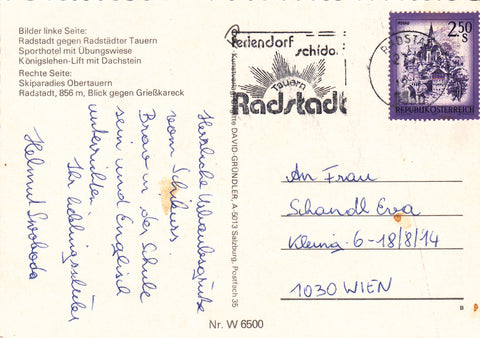 Bilder linke Seite:
Radstadt gegen Radstädter Tauern
Sporthotel mit Übungswiese
Königslehen-Lift mit Dachstein
Rechte Seite:
Skiparadies Obertauern
Radstadt, 856 m, Blick gegen Grießkareck
Herzliche Urlaubsgrüße
vom Schikurs.
Brav in der Schule
sein und Englisch
unterrichten
Ihr Lieblingsschüler
Helmut Swoboda
DAVID-GRÜNDLER, A-5013 Salzburg, Postfach 35
Nr. W 6500
Feriendorf
schido
Tauern
Radstadt
RADSTADT
2.50
S
REPUBLIK ÖSTERREICH
An Frau
Schandl Eva
6-18/8/14
1030 WIEN
B